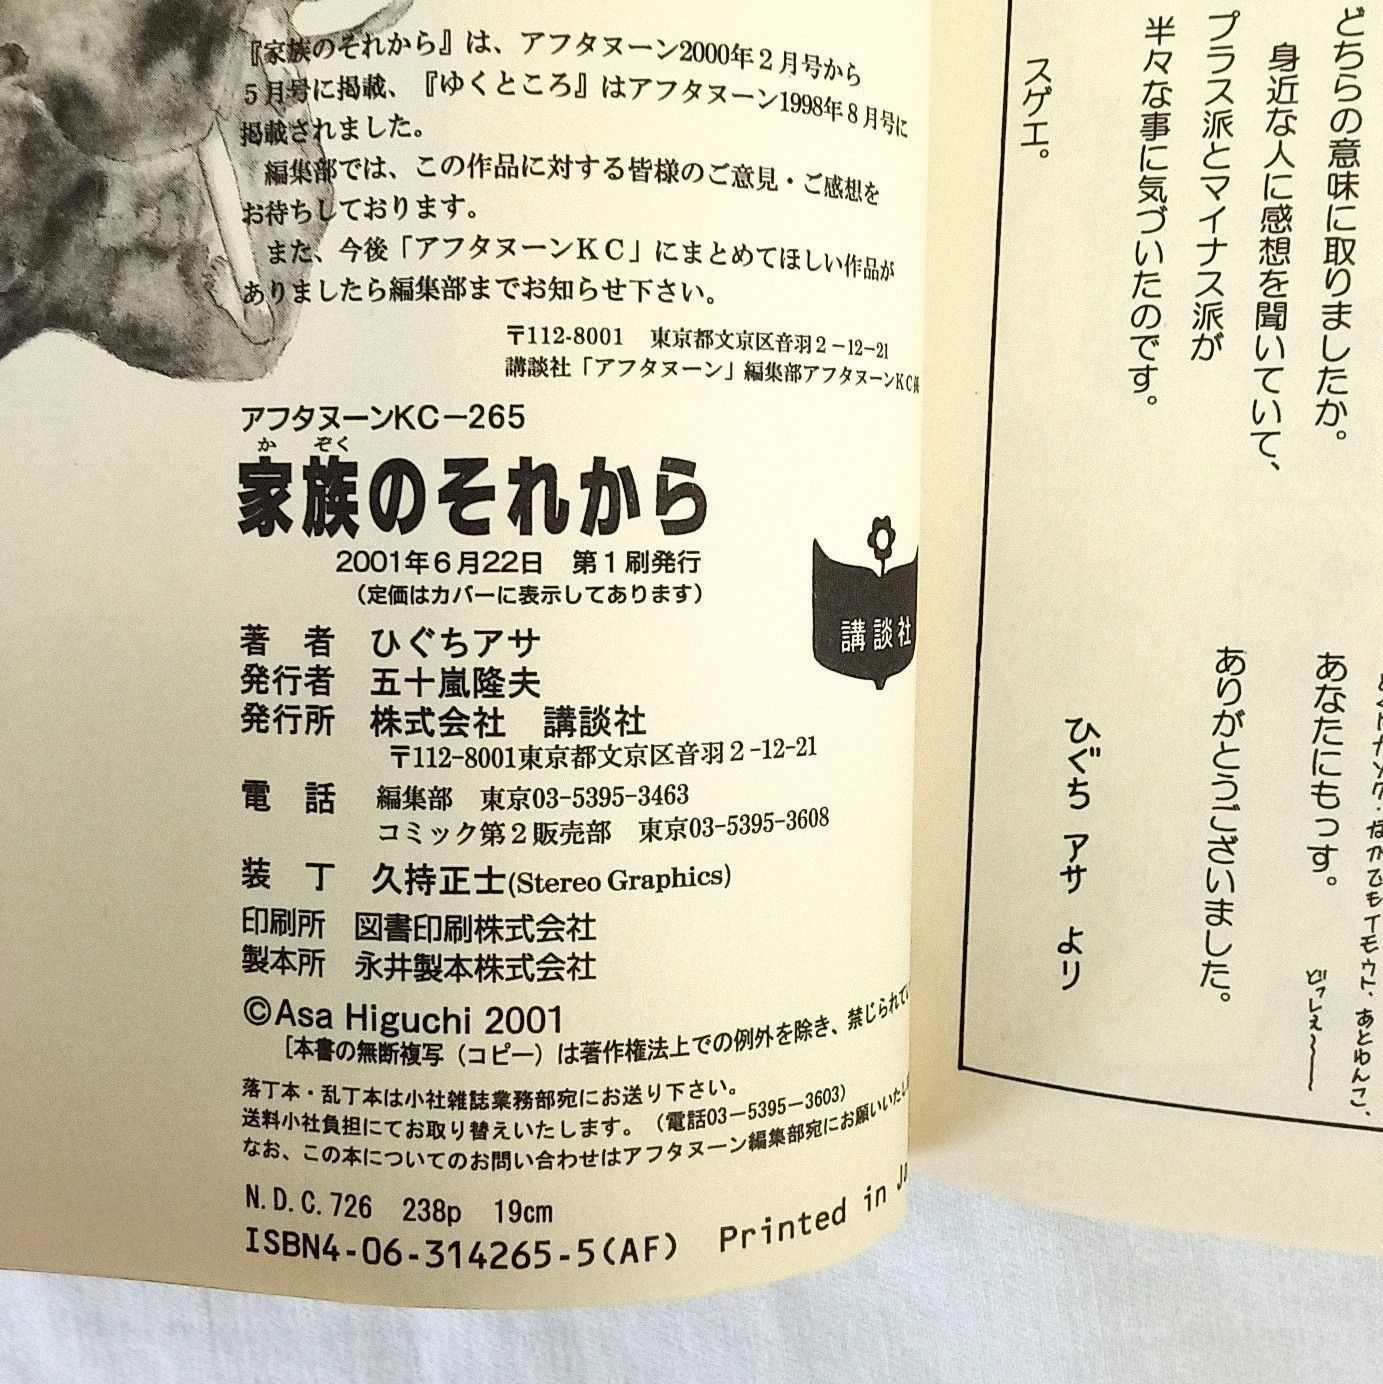 『家族のそれから』は、アフタヌーン2000年２月号から
５月号に掲載、『ゆくところ』はアフタヌーン1998年８月号に
掲載されました。
編集部では、この作品に対する皆様のご意見・ご感想を
お待ちしております。
また、今後「アフタヌーンＫＣ」にまとめてほしい作品が
ありましたら編集部までお知らせ下さい。
〒112-8001　東京都文京区音羽２－12－21
講談社「アフタヌーン」編集部アフタヌーンＫＣ
アフタヌーンKC－265
か　ぞく
家族のそれから
2001年６月22日　第１刷発行
（定価はカバーに表示してあります）
著　者　ひぐちアサ
発行者　五十嵐隆夫
発行所　株式会社　講談社
〒112-8001東京都文京区音羽２-12-21
電　話　編集部　東京03-5395-3463
コミック第２販売部　東京03-5395-3608
装　丁　久持正士(Stereo Graphics)
印刷所　図書印刷株式会社
製本所　永井製本株式会社
©Asa Higuchi 2001
［本書の無断複写（コピー）は著作権法上での例外を除き、禁じられて
落丁本・乱丁本は小社雑誌業務部宛にお送り下さい。
送料小社負担にてお取り替えいたします。（電話03－5395－3603）
なお、この本についてのお問い合わせはアフタヌーン編集部宛にお願いいたし
N.D.C.726　238p　19cm
ISBN4-06-314265-5(AF)　Printed in
講談社
どちらの意味に取りましたか。
身近な人に感想を聞いていて、
プラス派とマイナス派が
半々な事に気づいたのです。
スゲエ。
なかでもイモウト、あとわんこ、
どっしぇ〜
あなたにもっす。
ありがとうございました。
ひぐち アサ より